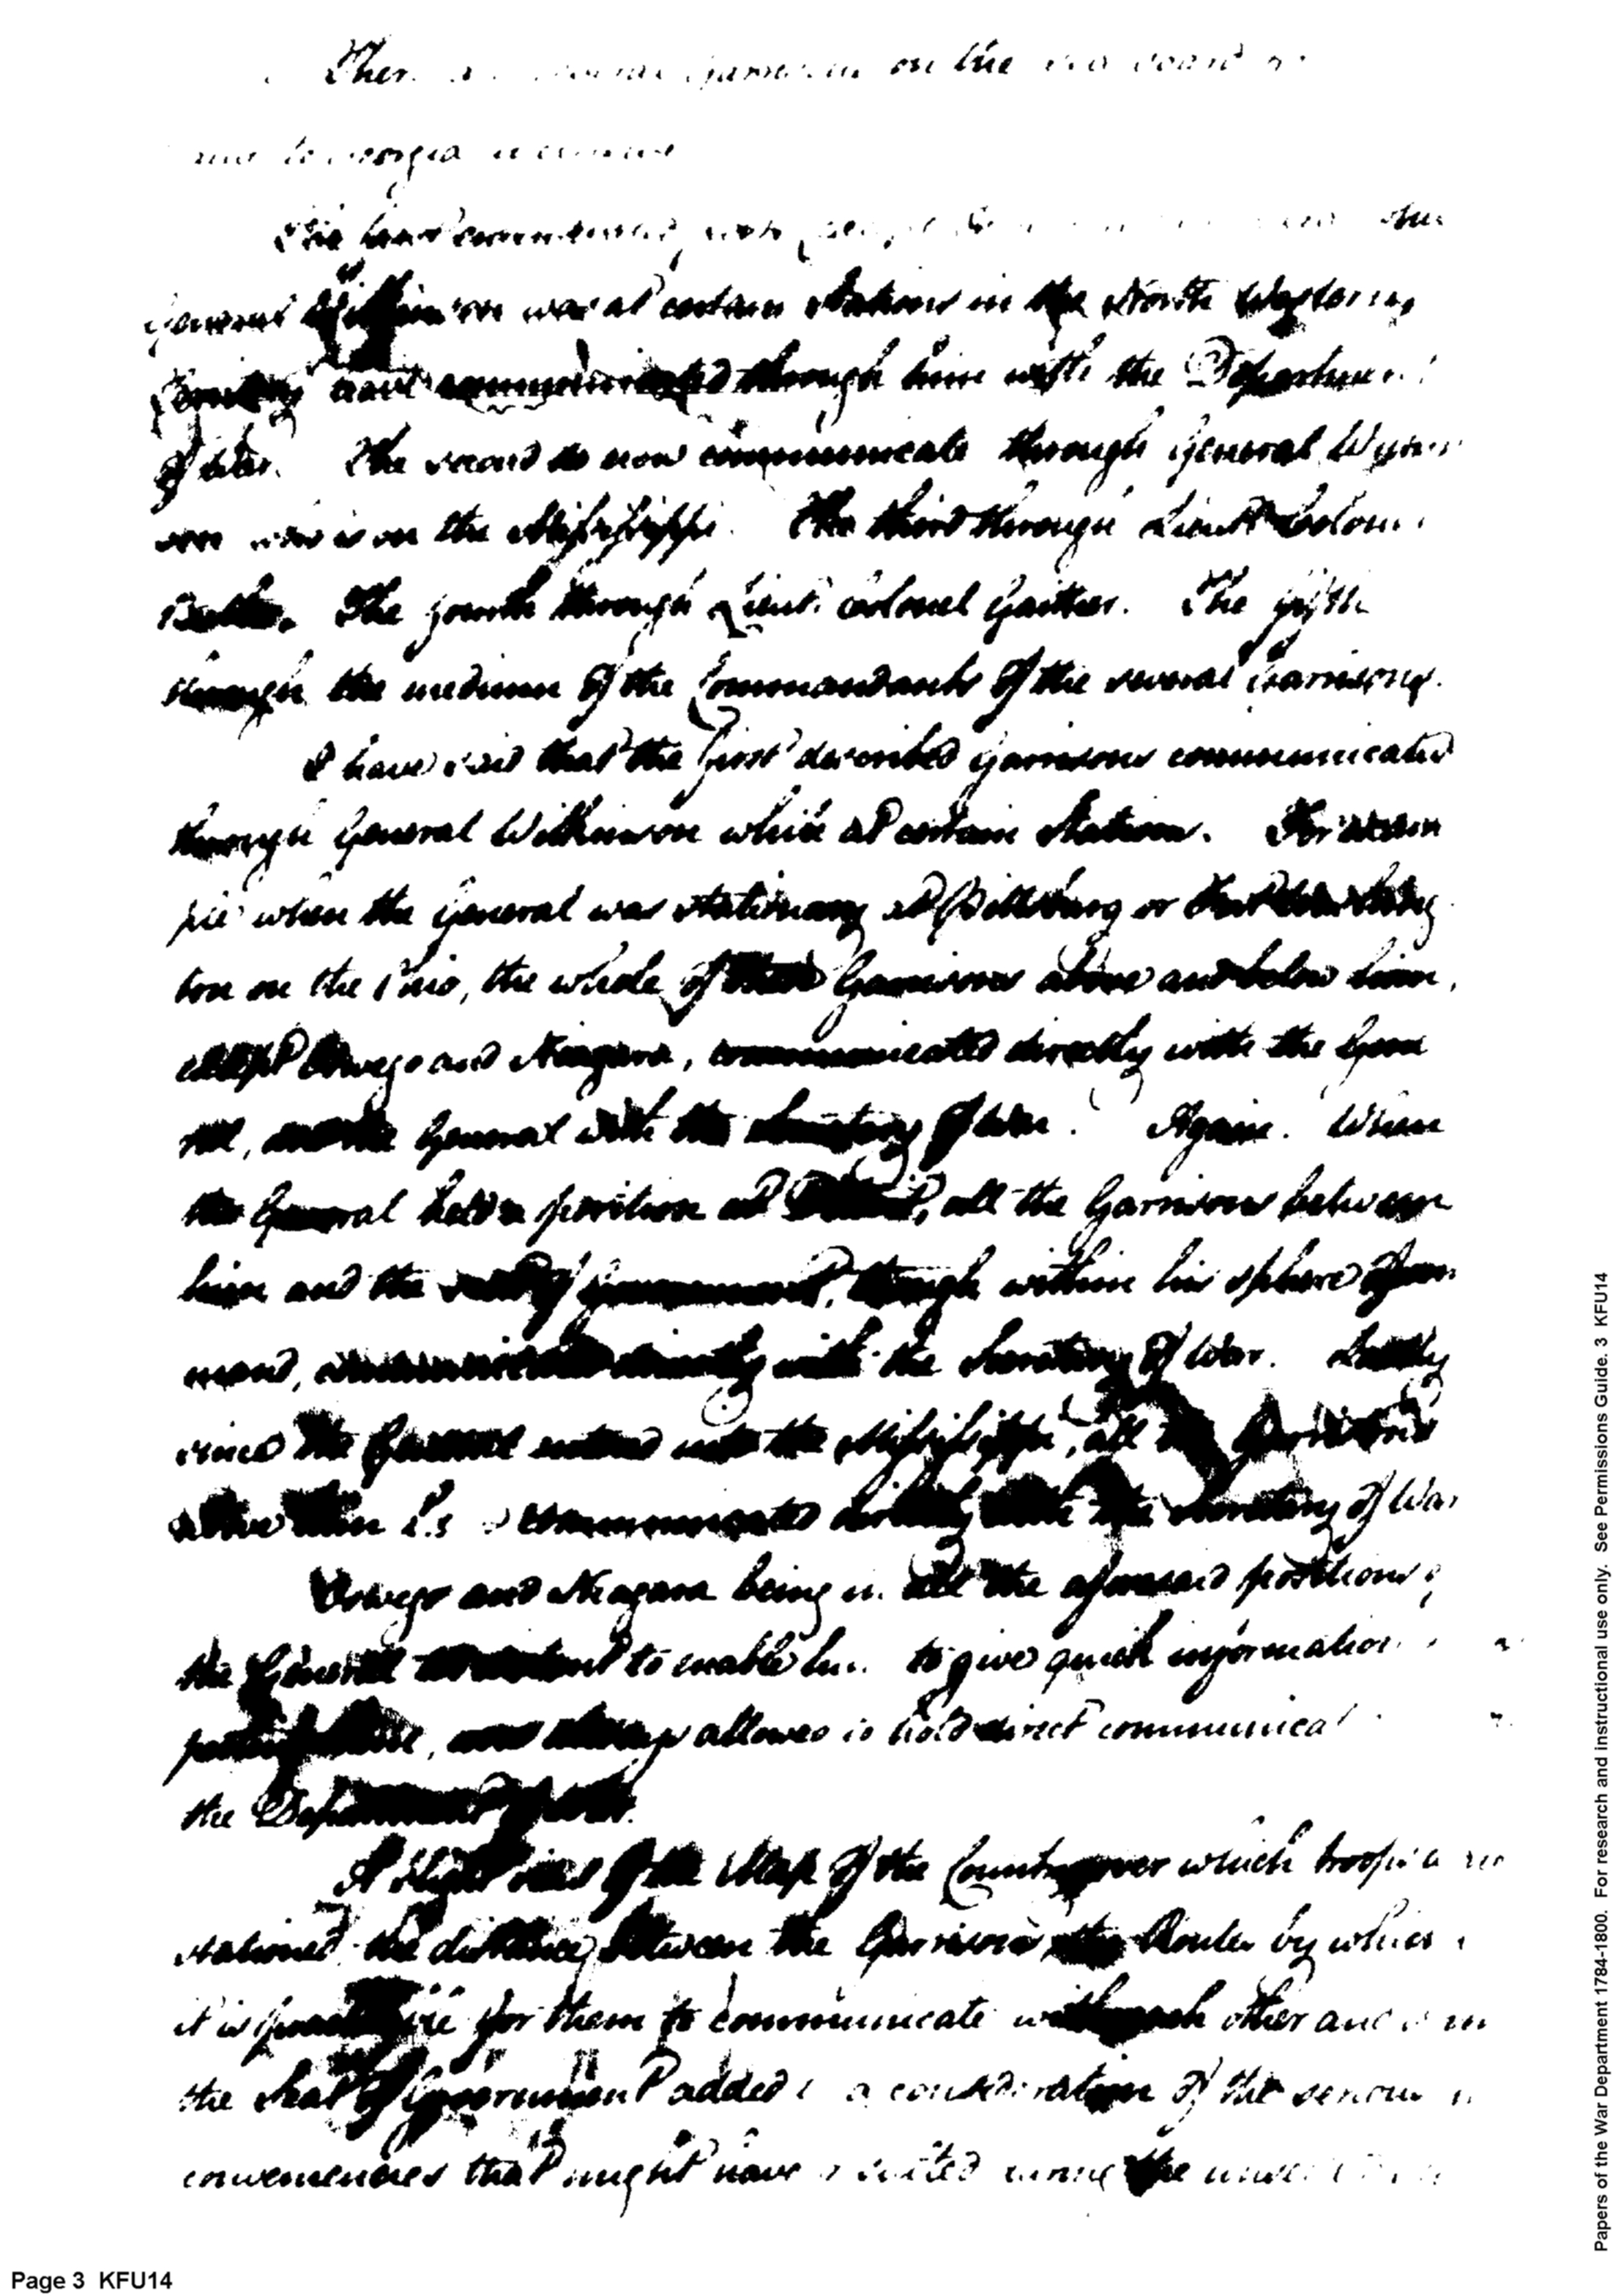 on the
to Georgia
The
General Wilkinson was at certain Stations in the North Western
Territory have communicated through him with the Department
of War. The second do now communicate through General Wilkin
son who is on the Mississippi. The third through Lieut Colonel
Butler. The fourth through Lieut. Colonel Gaither. The fifth
through the medium of the Commandants of the several Garrisons.
I have said that the first described Garrisons communicated
through General Wilkinson while at certain Stations. For exam
ple when the General was stationary at Pittsburg or Fort Washing
ton on the Ohio, the whole of these Garrisons above and below him,
except Oswego and Niagara, communicated directly with the Gene
ral, and the General with the Secretary of War. Again. When
the General held a position at Detroit, all the Garrisons between
him and the seat of Government, though within his sphere of com
mand, communicated directly with the Secretary of War. Lastly
since the General entered into the Mississippi, all the Garrisons
above communicated directly with the Secretary of War
Oswego and Niagara being in all the aforesaid positions
the General to enable him to give quick information
, and always allowed to hold direct communicat
the Department of War.
A slight view of the Map of the Country over which troops are
stationed the distance between the Garrisons the Routes by which
it is practicable for them to communicate with each other and
the Seat of Government added a consideration of the serious in
conveniences that might have resulted the
Papers of the War Department 1784-1800. For research and instructional use only. See Permissions Guide. 3 KFU14
Page 3 KFU14